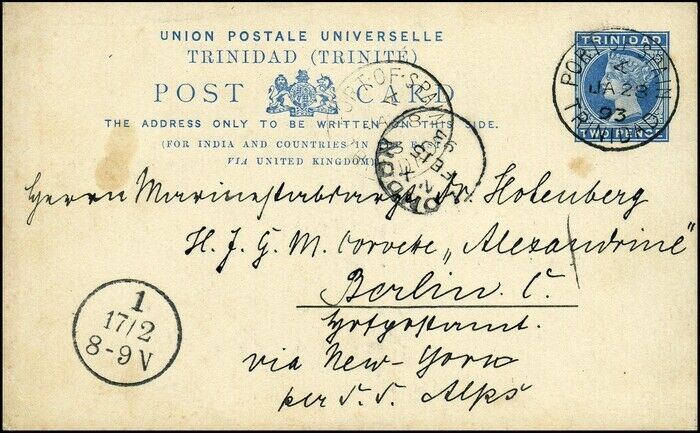 UNION POSTALE UNIVERSELLE
TRINIDAD (TRINITÉ)
POST CARD
THE ADDRESS ONLY TO BE WRITTEN ON THIS SIDE.
(FOR INDIA AND COUNTRIES IN THE EAST
VIA UNITED KINGDOM)
TRINIDAD
TWO PENCE
PORT OF SPAIN
A
JA 28
93
TRINIDAD
PORT-OF-SPAIN
A
LONDON
Herrn Marinestabsarzt Dr. Holenberg
H. J. G. M. Corvete „Alexandrine"
Berlin. C.
Hofpostamt.
via New-York
per S. S. Alps
1
17/2
8-9 V